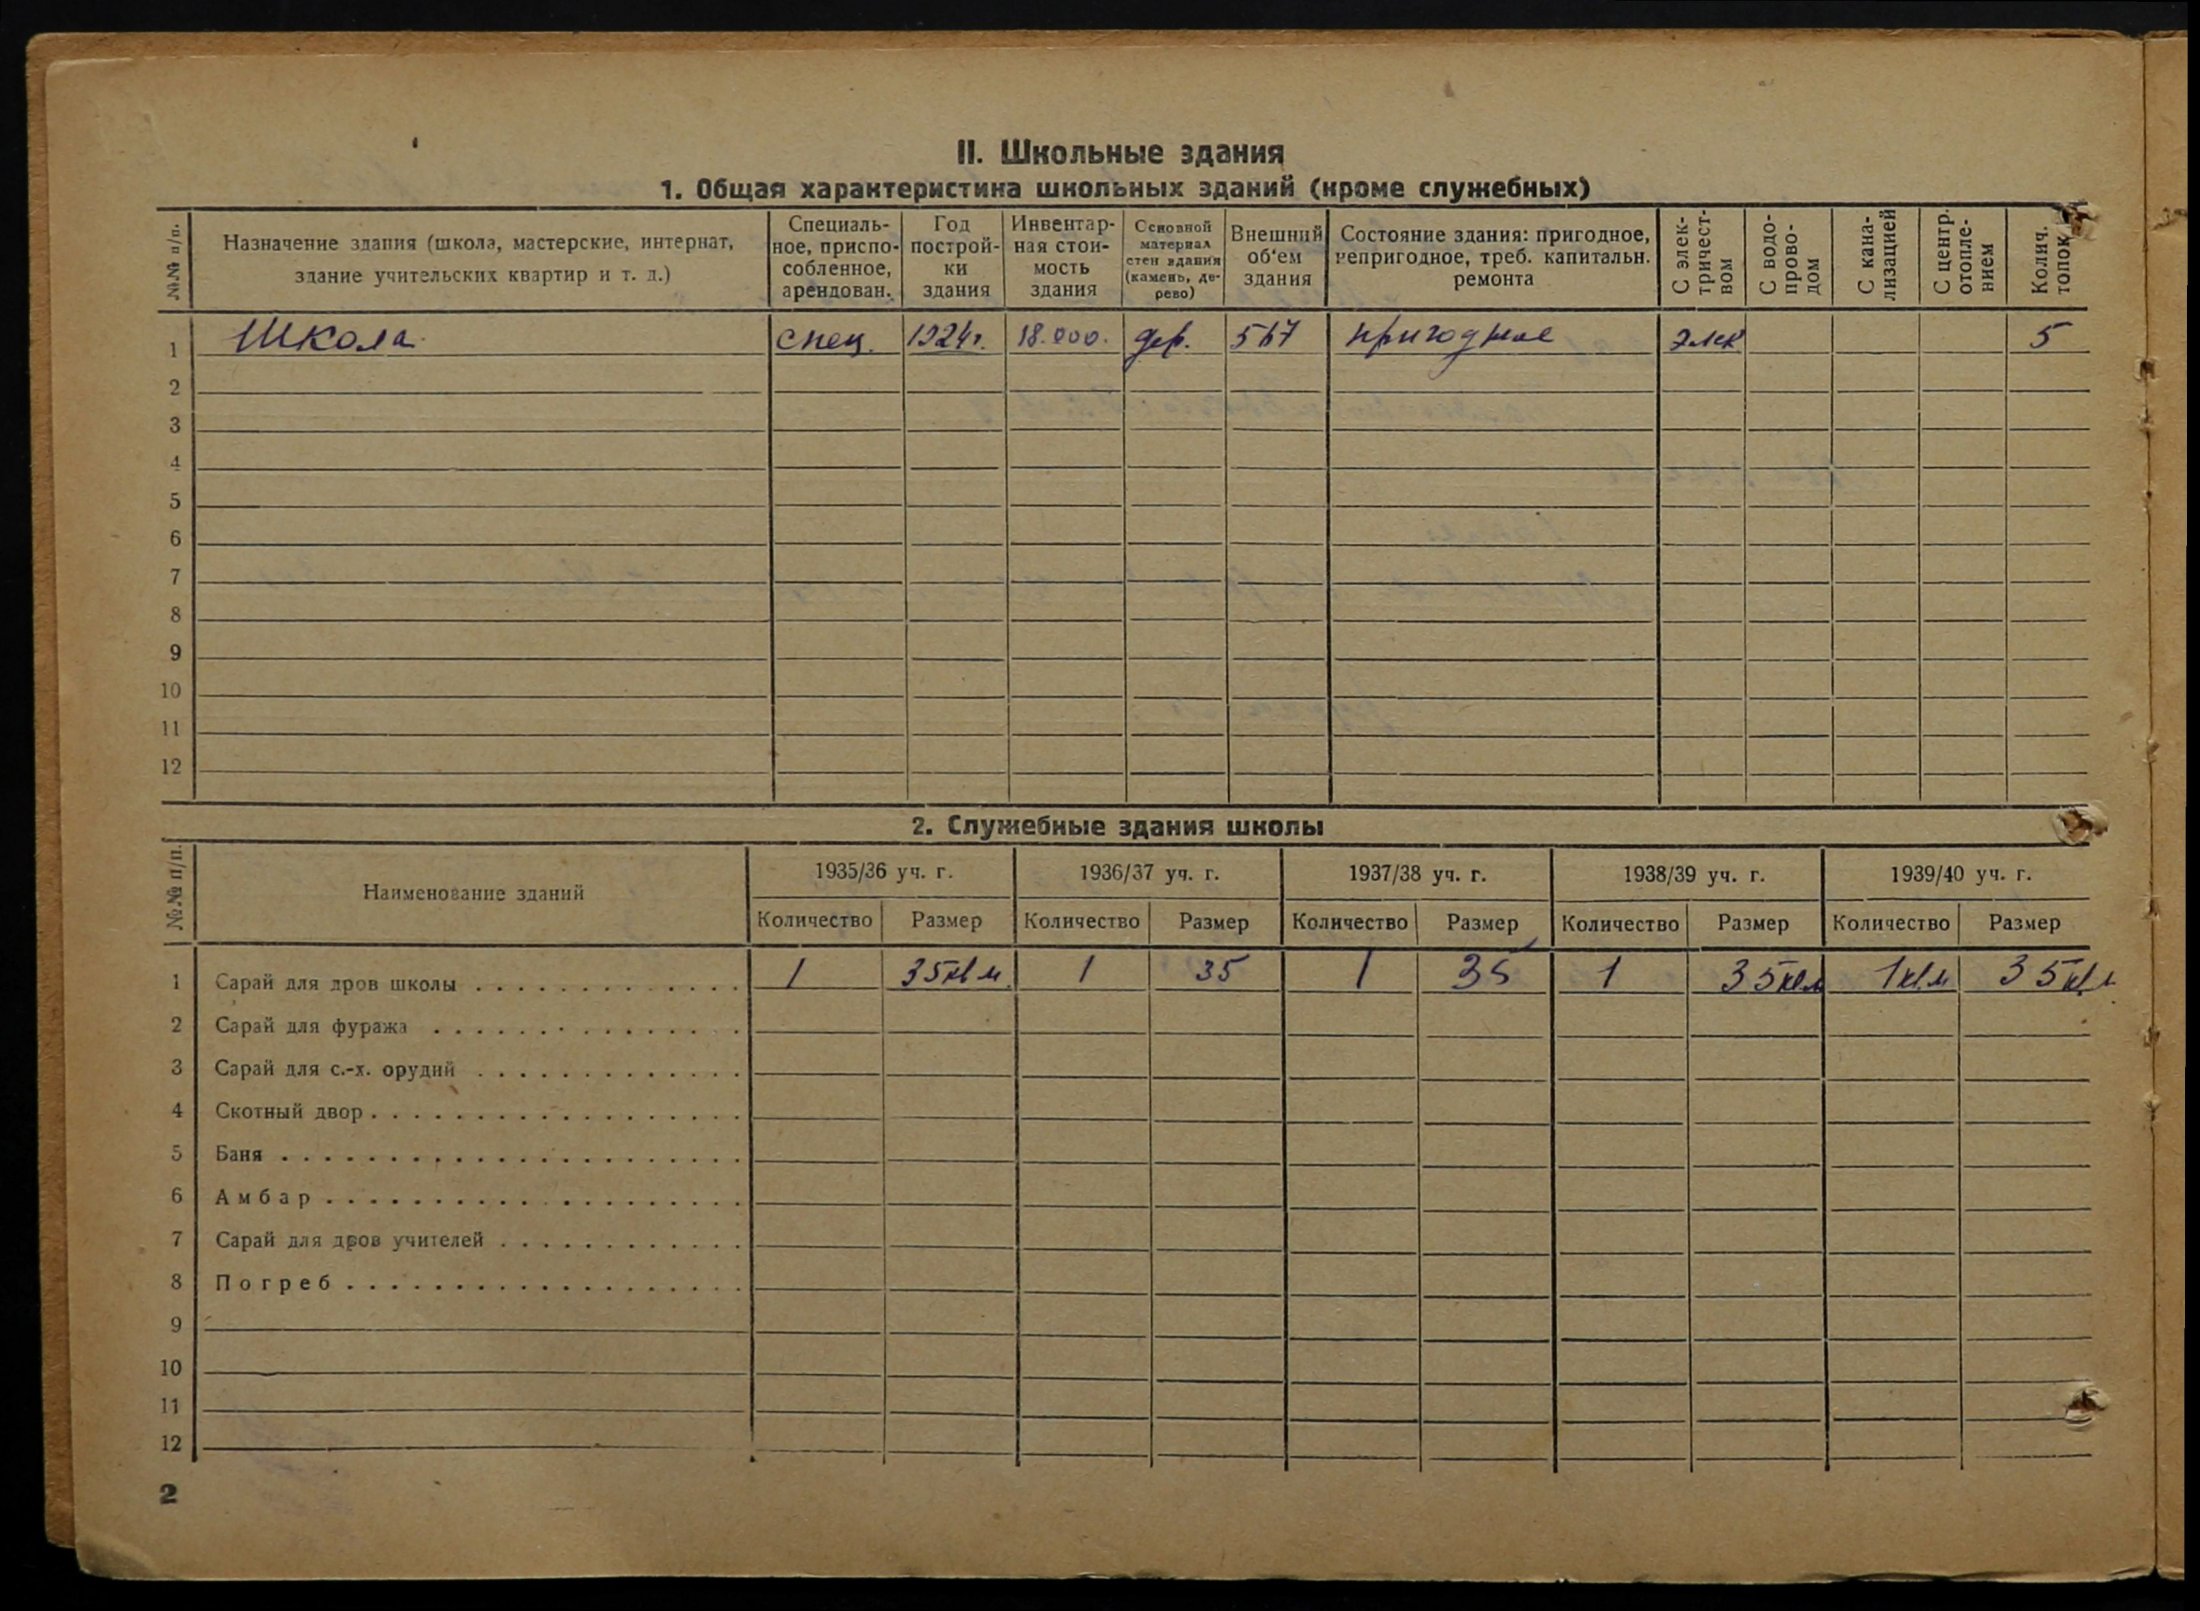 II. Школьные здания
1. Общая характеристика школьных зданий (кроме служебных)
№№ п/п. Назначение здания (школа, мастерские, интернат, здание учительских квартир и т. д.) Специальное, приспособленное, арендован. Год постройки здания Инвентарная стоимость здания Основной материал стен здания (камень, дерево) Внешний об'ем здания Состояние здания: пригодное, непригодное, треб. капитальн. ремонта С электричеством С водопроводом С канализацией С центр. отоплением Колич. топок
1 Школа спец. 1924г. 18.000. дер. 567 пригодное элек 5
2
3
4
5
6
7
8
9
10
11
12
2. Служебные здания школы
№№ п/п. Наименование зданий 1935/36 уч. г. 1936/37 уч. г. 1937/38 уч. г. 1938/39 уч. г. 1939/40 уч. г.
Количество Размер Количество Размер Количество Размер Количество Размер Количество Размер
1 Сарай для дров школы 1 35кв м 1 35 1 35 1 35кв.м 1кв.м 35кв.м
2 Сарай для фуража
3 Сарай для с.-х. орудий
4 Скотный двор
5 Баня
6 Амбар
7 Сарай для дров учителей
8 Погреб
9
10
11
12
2